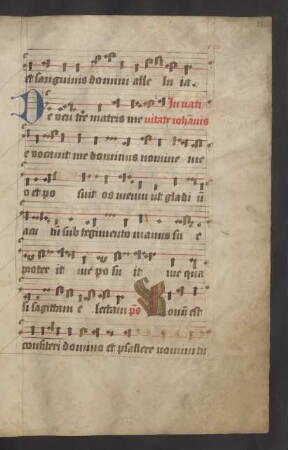 et sanguinis domini alle lu ia.
In nati
De ven tre matris me vitate ioh̄anis
e vocavit me dominus nomine me
o et po suit os meum ut gladi ū
acu tū sub tegumento manus su e
protex it me po su it me qua
si sagittam e lectam ps Bonū est
confiteri domino et psallere nomini tu